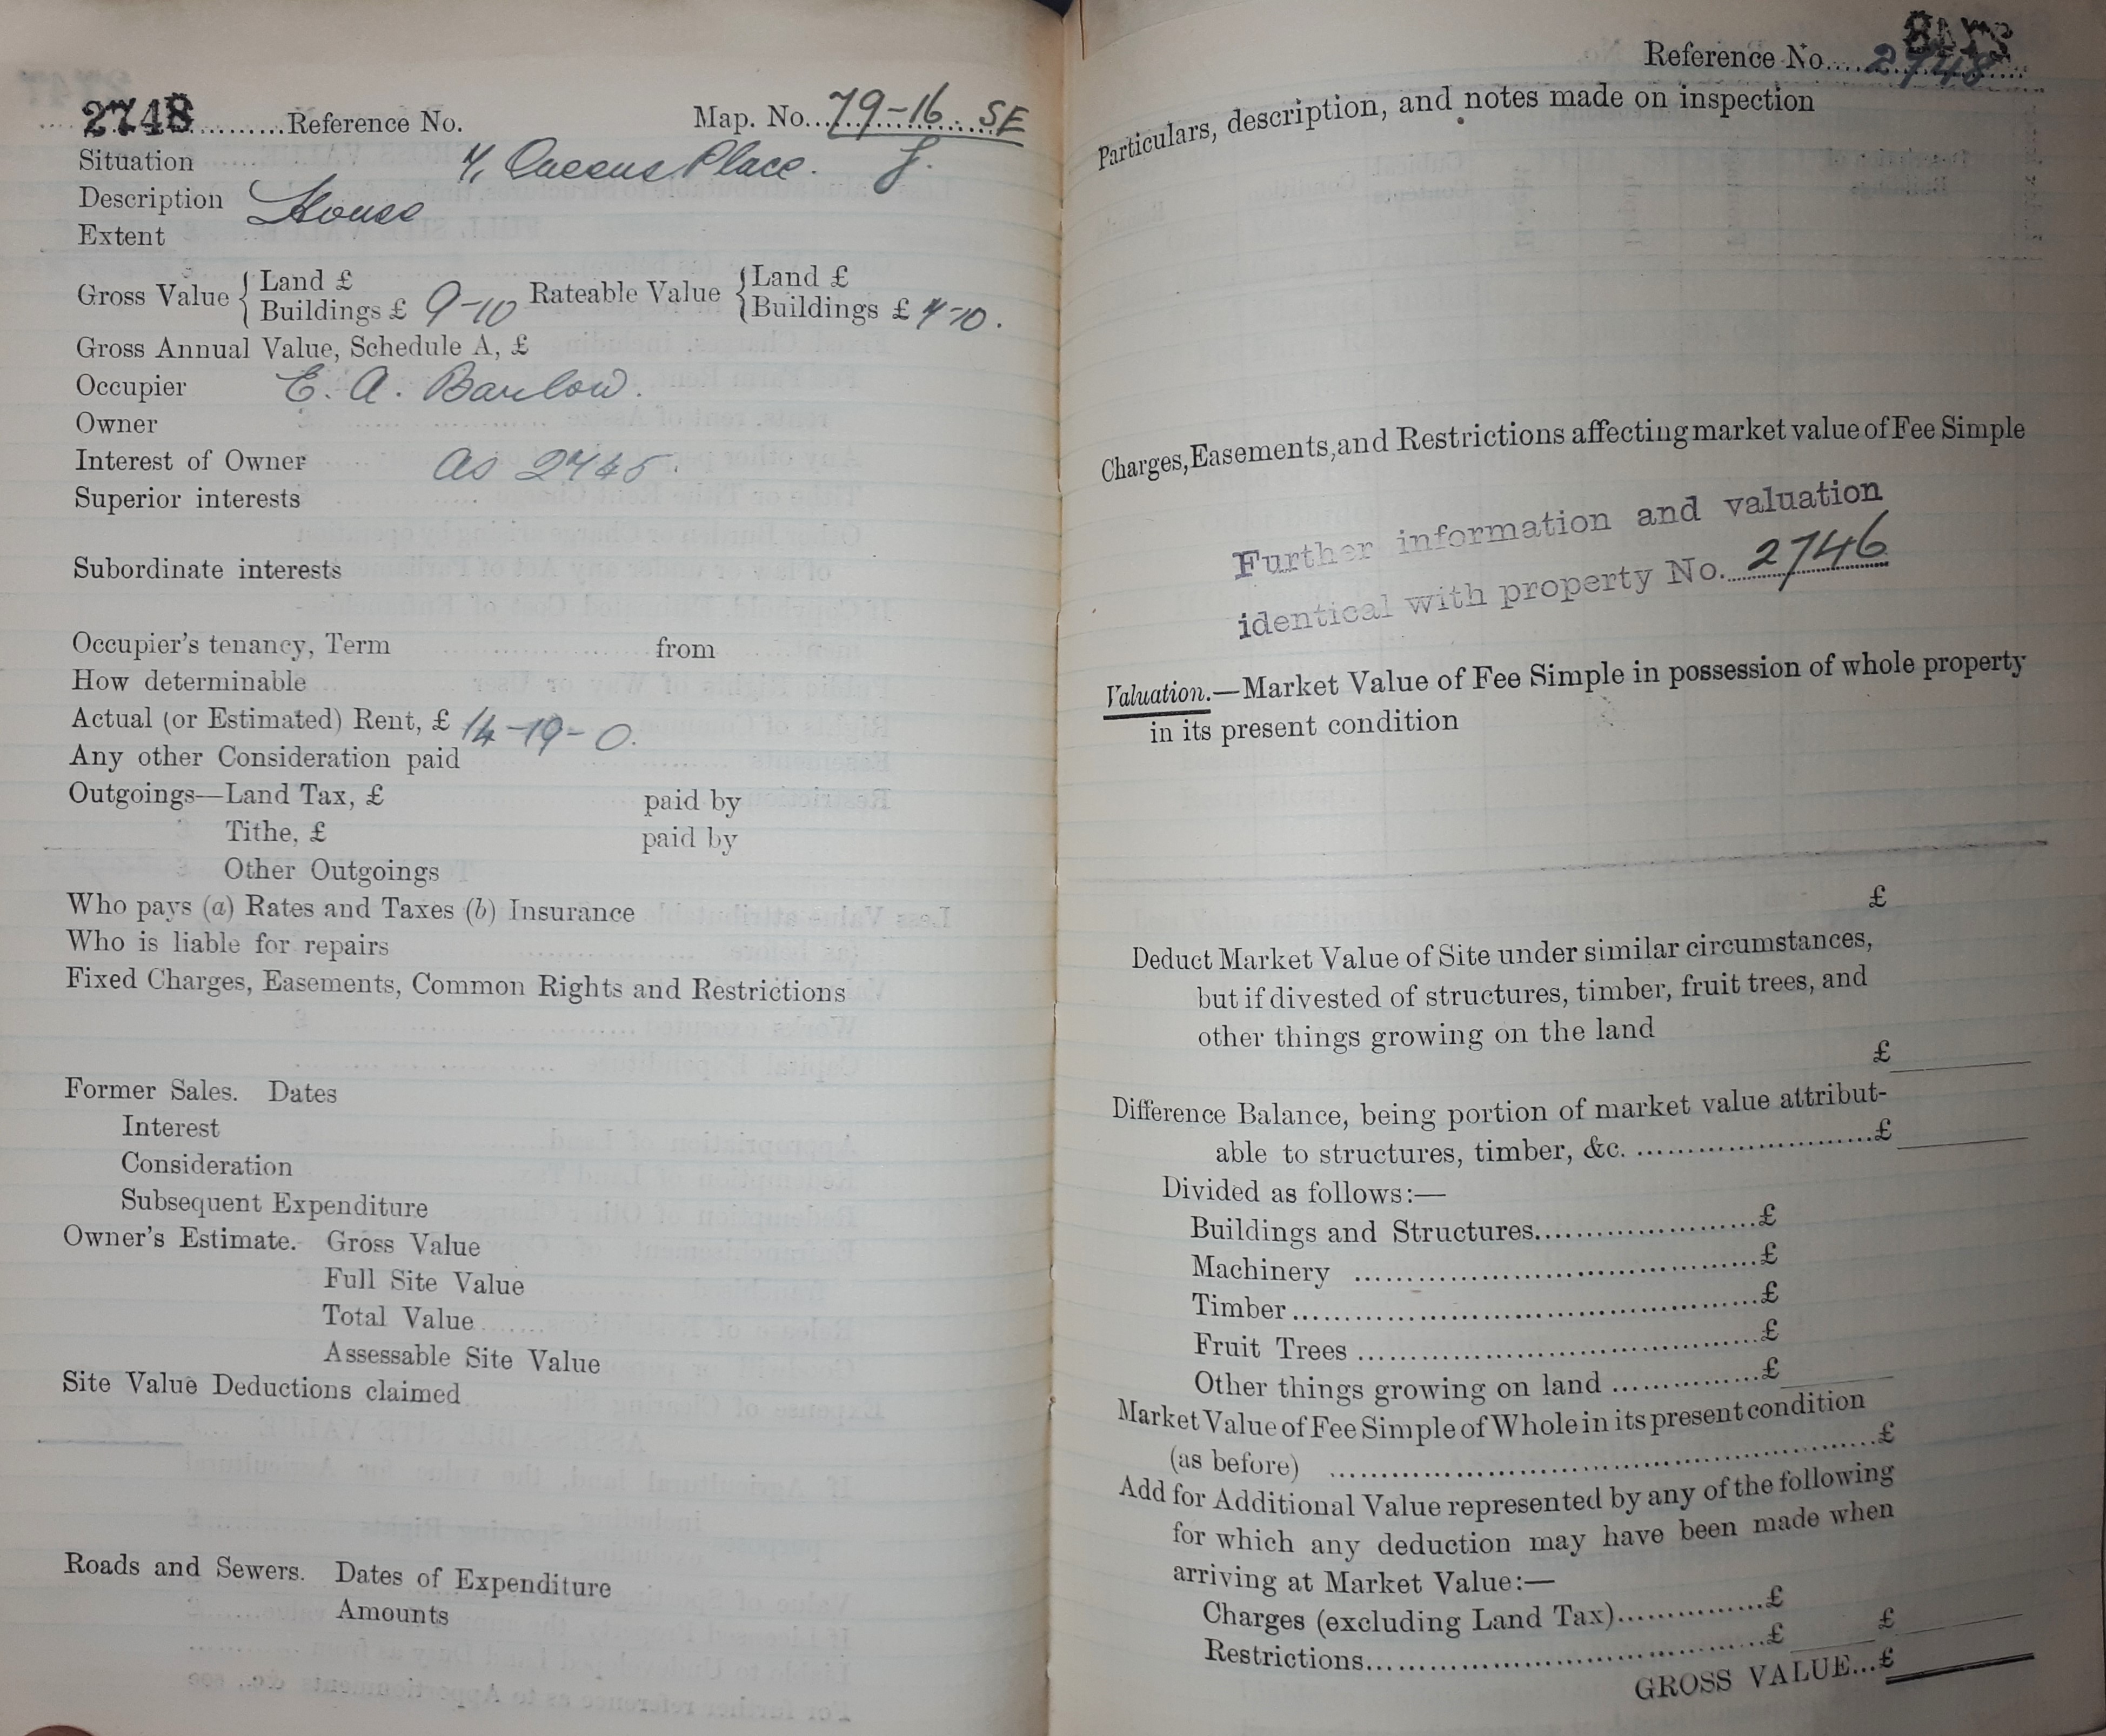 2748..........Reference No. Map. No. 79-16 SE
Situation 7, Queens Place.
Description House
Extent
Gross Value { Land £ Rateable Value { Land £
Buildings £ 9-10 Buildings £ 7-10.
Gross Annual Value, Schedule A, £
Occupier E. A. Barlow.
Owner
Interest of Owner as 2745.
Superior interests
Subordinate interests
Occupier's tenancy, Term from
How determinable
Actual (or Estimated) Rent, £ 14-19-0.
Any other Consideration paid
Outgoings—Land Tax, £ paid by
Tithe, £ paid by
Other Outgoings
Who pays (a) Rates and Taxes (b) Insurance
Who is liable for repairs
Fixed Charges, Easements, Common Rights and Restrictions
Former Sales. Dates
Interest
Consideration
Subsequent Expenditure
Owner's Estimate. Gross Value
Full Site Value
Total Value
Assessable Site Value
Site Value Deductions claimed
Roads and Sewers. Dates of Expenditure
Amounts
Reference No. 2748
Particulars, description, and notes made on inspection
Charges, Easements, and Restrictions affecting market value of Fee Simple
Further information and valuation
identical with property No. 2746
Valuation.—Market Value of Fee Simple in possession of whole property
in its present condition
£
Deduct Market Value of Site under similar circumstances,
but if divested of structures, timber, fruit trees, and
other things growing on the land
£
Difference Balance, being portion of market value attribut-
able to structures, timber, &c. ........................£
Divided as follows:—
Buildings and Structures........................£
Machinery ........................£
Timber........................£
Fruit Trees ........................£
Other things growing on land ...............£
Market Value of Fee Simple of Whole in its present condition
(as before) ........................£
Add for Additional Value represented by any of the following
for which any deduction may have been made when
arriving at Market Value:—
Charges (excluding Land Tax)................£
Restrictions........................£ £
GROSS VALUE...£